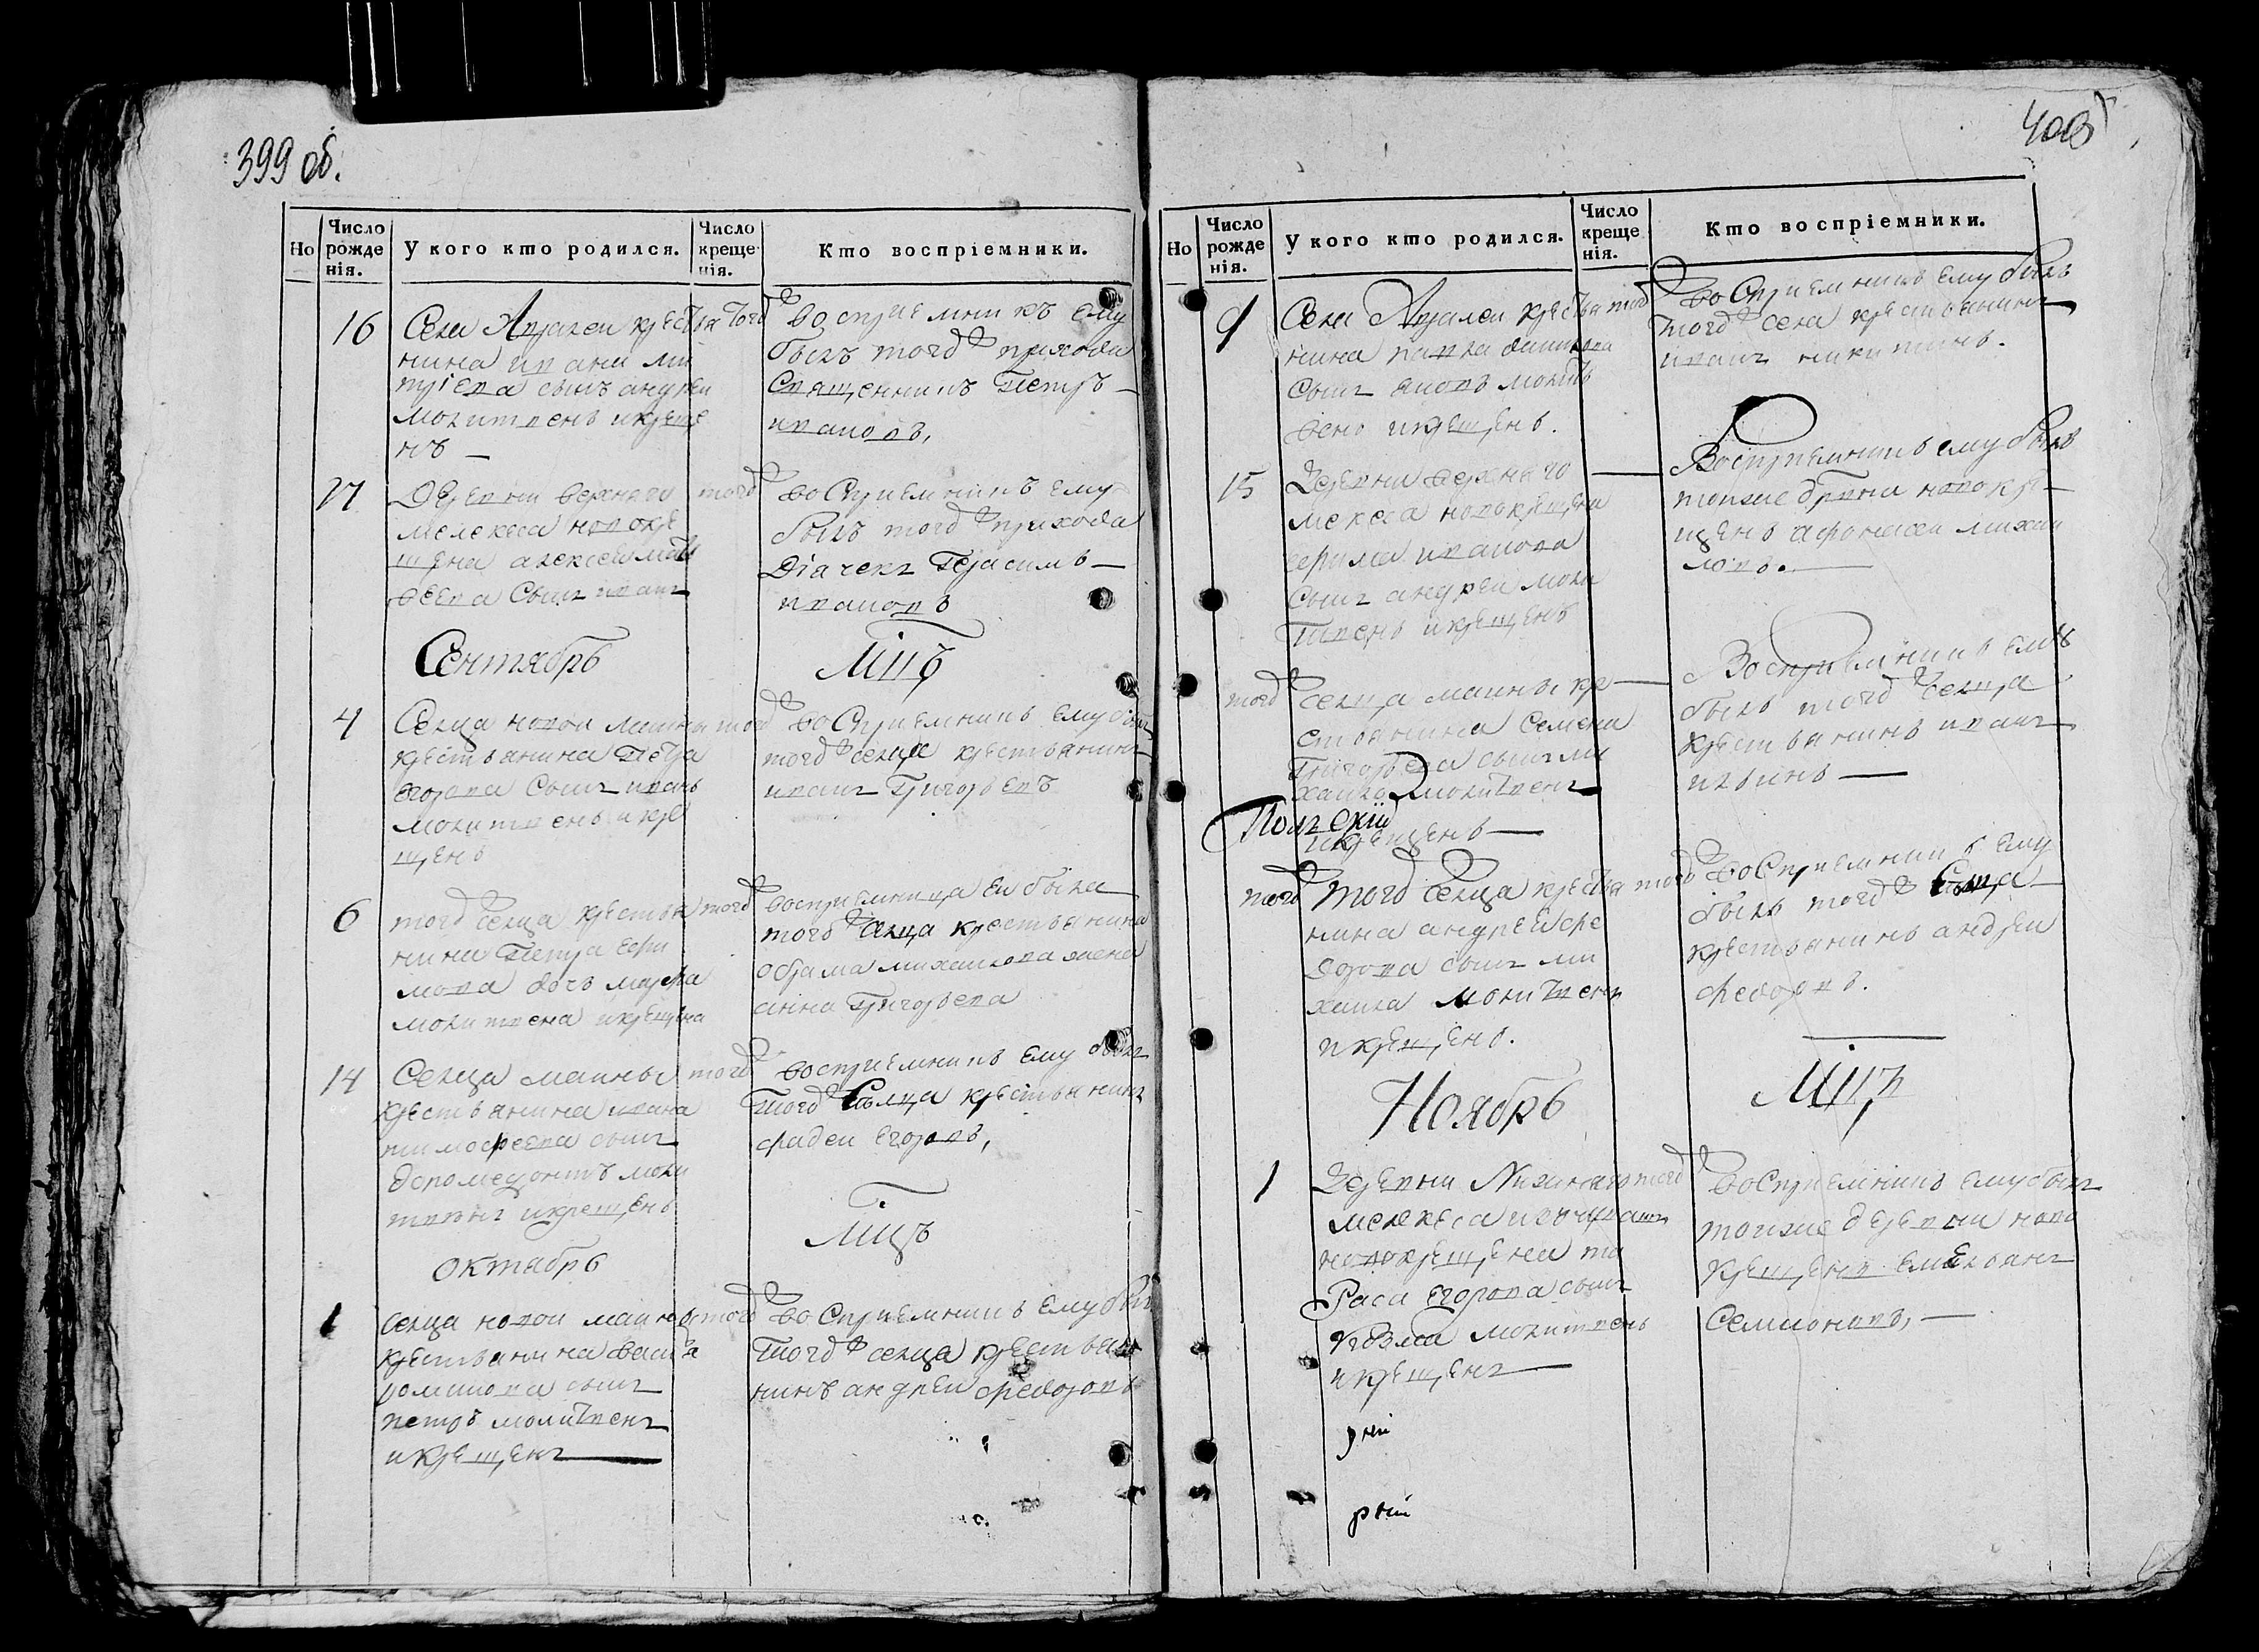 399 об.
Но
Число рожденія.
У кого кто родился.
Число крещенія.
Кто воспріемники.
16
Села Арiалеи крестья
нина ивана ми
трiева сынъ андреи
молитвенъ и креще
нъ —
того
восприемникъ ему
былъ того прихода
Священникъ Петръ —
ивановъ,
27
Деревни верхнего
мелекеса новокре
щена алексея мат
веева сынъ иванъ
того
восприемникъ ему
былъ того прихода
Дiачекъ Герасимъ —
ивановъ
Сентябрь
Мцъ
4
Сельца новои маины
крестьянина Петра
егорова сынъ иванъ
молитвенъ и кре
щенъ
того
восприемникъ ему былъ
того сельца крестьянинъ
иванъ Григорьевъ
6
того сельца крестья
нина Петра ефи
мова дочь марфа
молитвена и крещена
того
восприемница еи была
того сельца крестьянина
абрама михаилова жена
анна Григорьева
14
Сельца маины
крестьянина ивана
тимофеева сынъ
моли
твенъ и крещенъ
того
восприемникъ ему былъ
того сельца крестьянинъ
фадеи егоровъ,
октябрь
Мцъ
1
сельца новои маины
крестьянина
сынъ
петръ молитвенъ
и крещенъ —
того
восприемникъ ему былъ
того сельца крестья
нинъ андреи федоровъ
Но
Число рожденія.
У кого кто родился.
Число крещенія.
Кто воспріемники.
9
Села Арiалеи крестья
нина павла
сынъ яковъ молит
венъ и крещенъ.
того
восприемникъ ему былъ
того села крестьянинъ
иванъ никитинъ.
15
Деревни верхнего
мекеса новокрещена
ефима иванова
сынъ андреи моли
твенъ и крещенъ
—
Восприемникъ ему былъ
тоиже дрвни новокре
щенъ афонасеи михаи
ловъ. —
того
сельца маины кре
стьянина Семена
Григорьева сынъ ми
хаила молитвенъ
и крещенъ —
—
Восприемникъ ему
былъ того сельца
крестьянинъ иванъ
ильинъ —
того
того сельца крестья
нина андреи фе
дорова сынъ ми
хаила молитвенъ
и крещенъ.
того
восприемникъ ему
былъ того сельца
крестьянинъ андреи
федоровъ.
Ноябрь
Мцъ
1
Деревни Нижнего
мелекеса
новокрещена та
раса егорова сынъ
козма молитвенъ
и крещенъ —
того
восприемникъ ему былъ
тоиже деревни ново
крещенъ емельянъ
Семионовъ, —